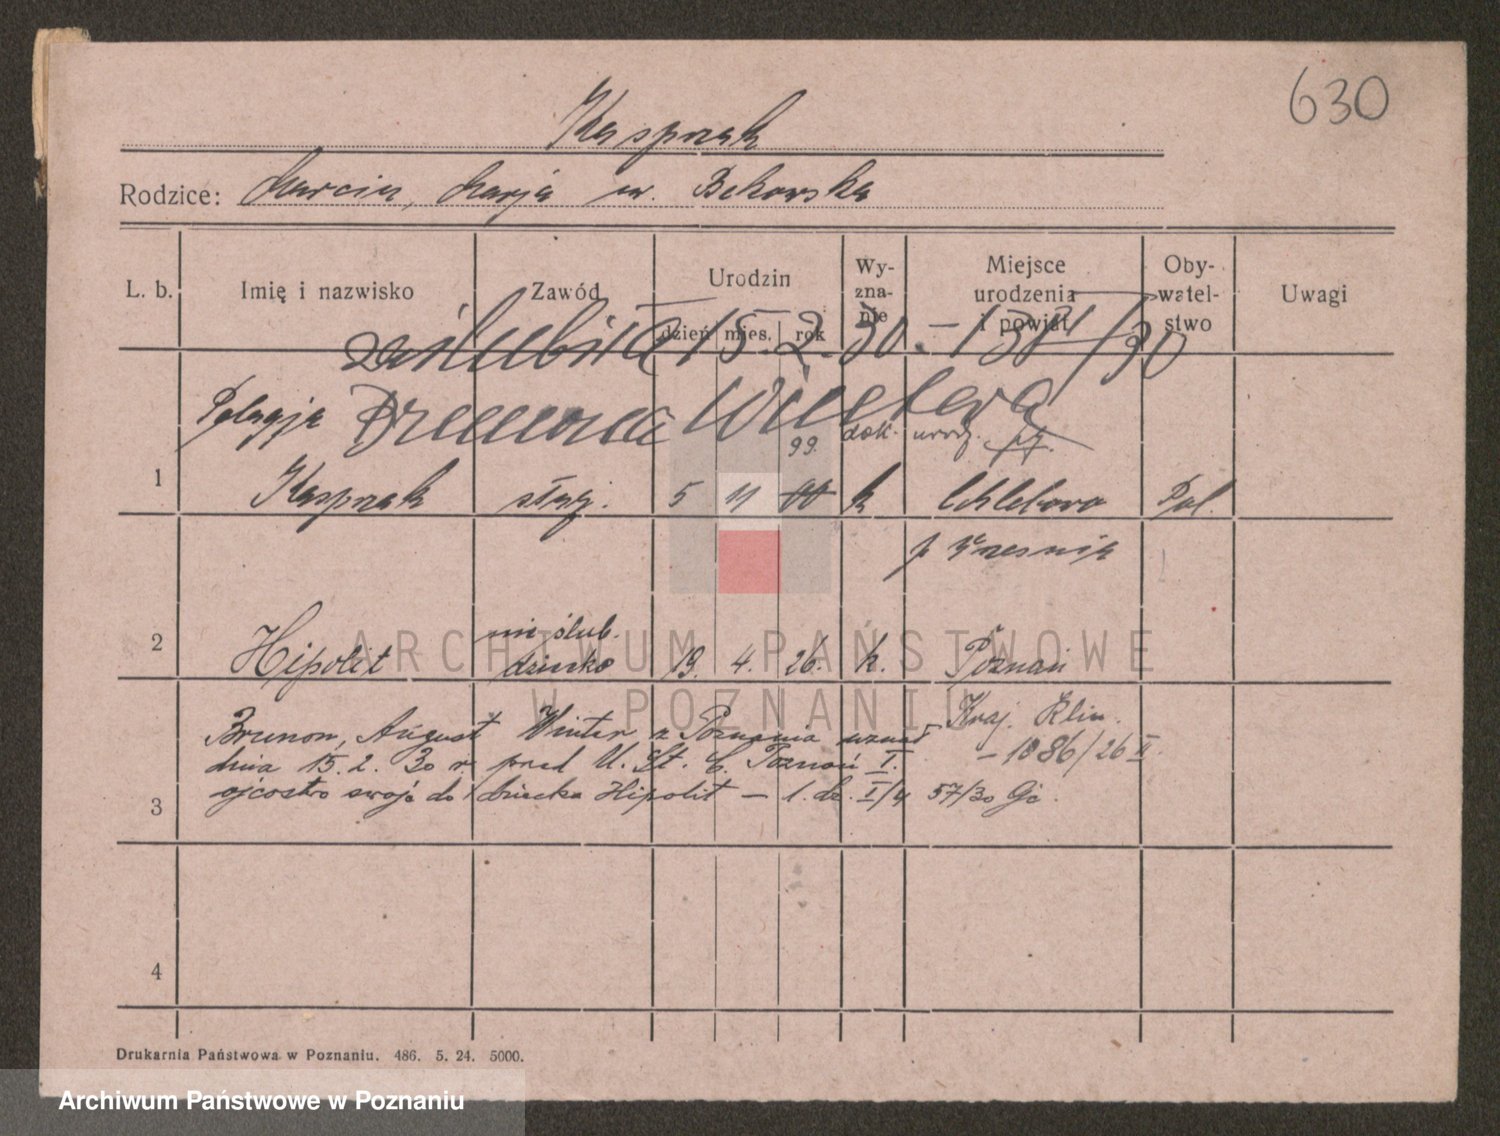 630
Kasprzak
Rodzice: Marcin, Marja ur. Bekarska
L. b. Imię i nazwisko Zawód Urodzin Wy-zna-nie Miejsce urodzenia i powiat Oby-watel-stwo Uwagi
dzień mies. rok
zaślubiła 15.2.30. – 131/30
Pelagja Brunona Wintera
99. dok. urodz.
1 Kasprzak służ. 5 11 00 k Chlebowo Pol.
p Września
nieślub.
2 Hipolit dziecko 19. 4. 26. k. Poznań
Kraj. Klin.
Brunon, August Winter z Poznania uznał
– 1086/26 II
dnia 15.2.30 r. pred U. St. C. Poznań I.
ojcostwo swoje do dziecka Hipolit – l. dz. I/4 57/30 Gc.
3
4
Drukarnia Państwowa w Poznaniu. 486. 5. 24. 5000.
ARCHIWUM PAŃSTWOWE
W POZNANIU
Archiwum Państwowe w Poznaniu